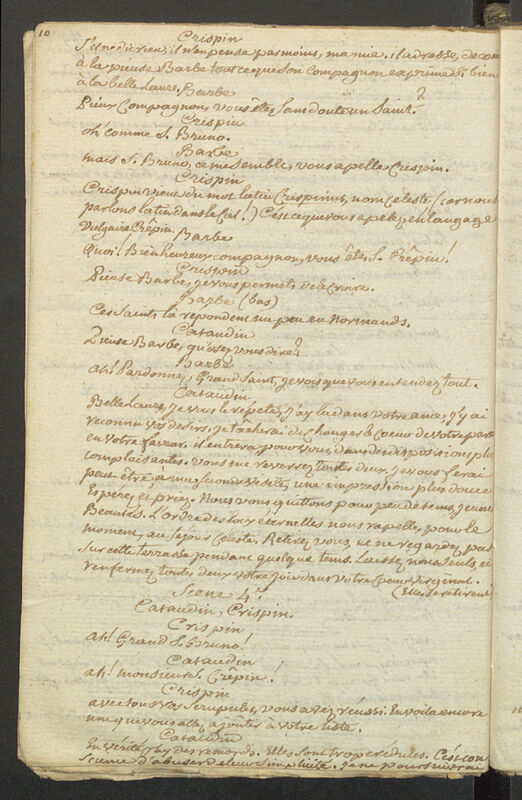 10
Crispin
S'il ne dit rien, il n'en pense pas moins, ma mie. il adresse, de coeur
à la pieuse Barbe tout ce que son Compagnon exprime si bien
à la belle Laure.
Barbe
Pieux Compagnon, vous êtes sans doute un Saint?
Crispin
oh! comme S. Bruno.
Barbe
mais S. Bruno, ce me semble, vous apelle Crispin.
Crispin
Crispin vient du mot latin Crispinus, nom Céleste. (car nous
parlons latin dans le Ciel!) C'est ce que vous apelez, en langage
vulgaire Crêpin.
Barbe
Quoi! Bienheureux compagnon, vous êtes S. Crêpin!
Crispin
Pieuse Barbe, je vous permets de le Croire.
Barbe (bas)
Ces Saints là répondent un peu en Normands.
Cataudin
Pieuse Barbe, qu'osez vous dire?
Barbe
ah! Pardonnez, Grand Saint, je vois que vous entendez tout.
Cataudin
Belle Laure, je vous le répete, j'ay lu dans votre ame, j'y ai
reconnu vos desirs. je tâcherai de changer le coeur de votre pere
en votre faveur. il entrera pour vous dans des dispositions plus
complaisantes. vous me reverrez toutes deux. je vous ferai
peut-être, à ma seconde visite, une impression plus douce.
Espérez, et priez. Nous vous quittons pour peu de tems, jeunes
Beautés. L'ordre des loix éternelles nous rapelle, pour le
moment, au séjour Céleste. Retirez vous, et ne regardez pas
sur cette terrasse pendant quelque tems. Laissez nous seuls, et
renfermez toutes deux votre joie dans votre Coeur virginal.
(Elles se retirent)
Scene 4.e
Cataudin, Crispin
Crispin
ah! Grand S. Bruno!
Cataudin
ah! monsieur S. Crêpin!
Crispin
avec tous vos scrupules, vous avez réussi. En voila encore
une que vous allez ajouter à votre liste.
Cataudin
En vérité j'ay des remords. Elles sont trop crédules. C'est con
science d'abuser de leur simplicité. je ne poursuivrai